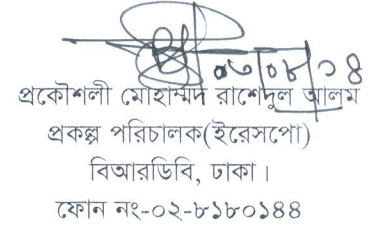 ০৬/০৮/১৪
প্রকৌশলী মোহাম্মদ রাশেদুল আলম
প্রকল্প পরিচালক(ইরেসপো)
বিআরডিবি, ঢাকা।
ফোন নং-০২-৮১৮০১৪৪